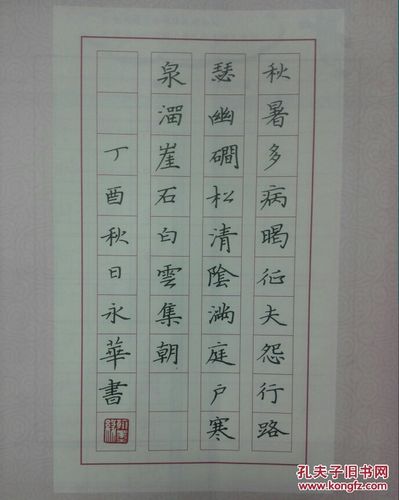 秋暑多病暍征夫怨行路
瑟幽磵松清陰滿庭户寒
泉溜崖石白雲集朝
丁酉秋日永華書
孔夫子旧书网
www.kongfz.com